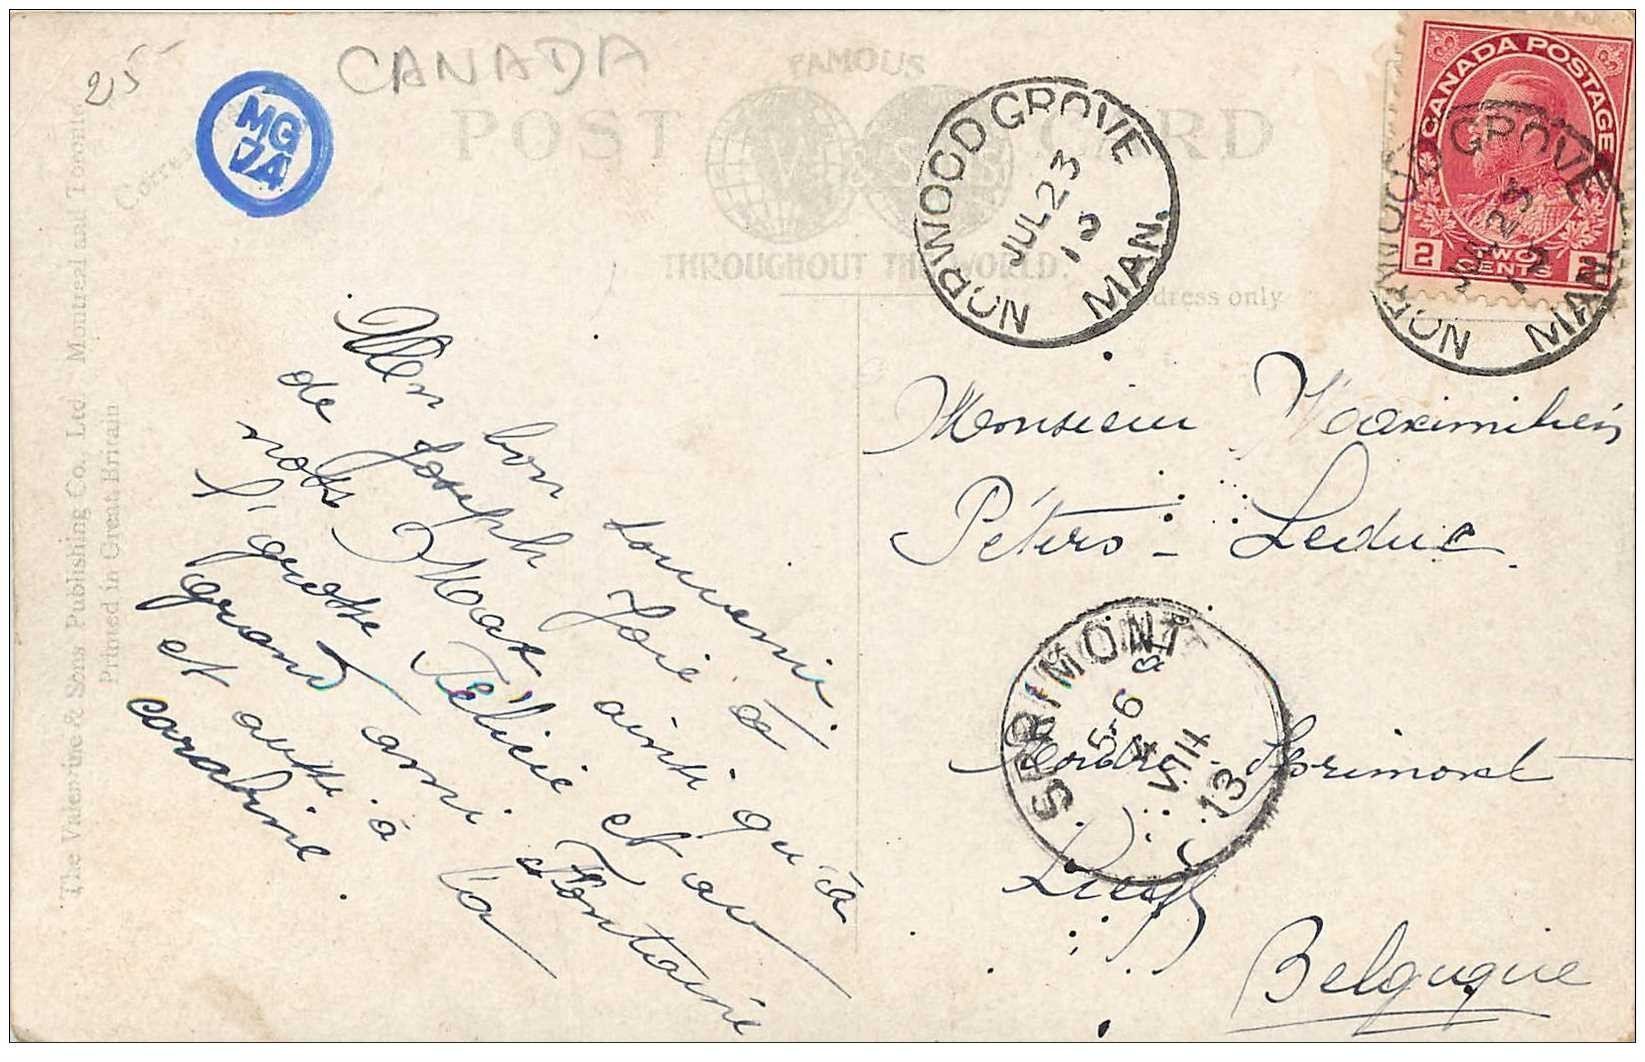 25
CANADA
MG
74
FAMOUS
POST CARD
THROUGHOUT THE WORLD.
Address only
The Valentine & Sons Publishing Co., Ltd. Montreal and Toronto
Printed in Great Britain
NORWOOD GROVE
JUL 23
MAN.
CANADA POSTAGE
2 TWO CENTS 2
NORWOOD GROVE
MAN
Un bon souvenir
de Joseph Joie à
nots Max ainsi qu'à
l'grosse Félicie et au
grand ami Fontaine
et aussi à la
caraline.
Monsieur Maximilien
Péters - Leduc
Sprimont
Belgique
SPRIMONT
5-6
4
VIII
13